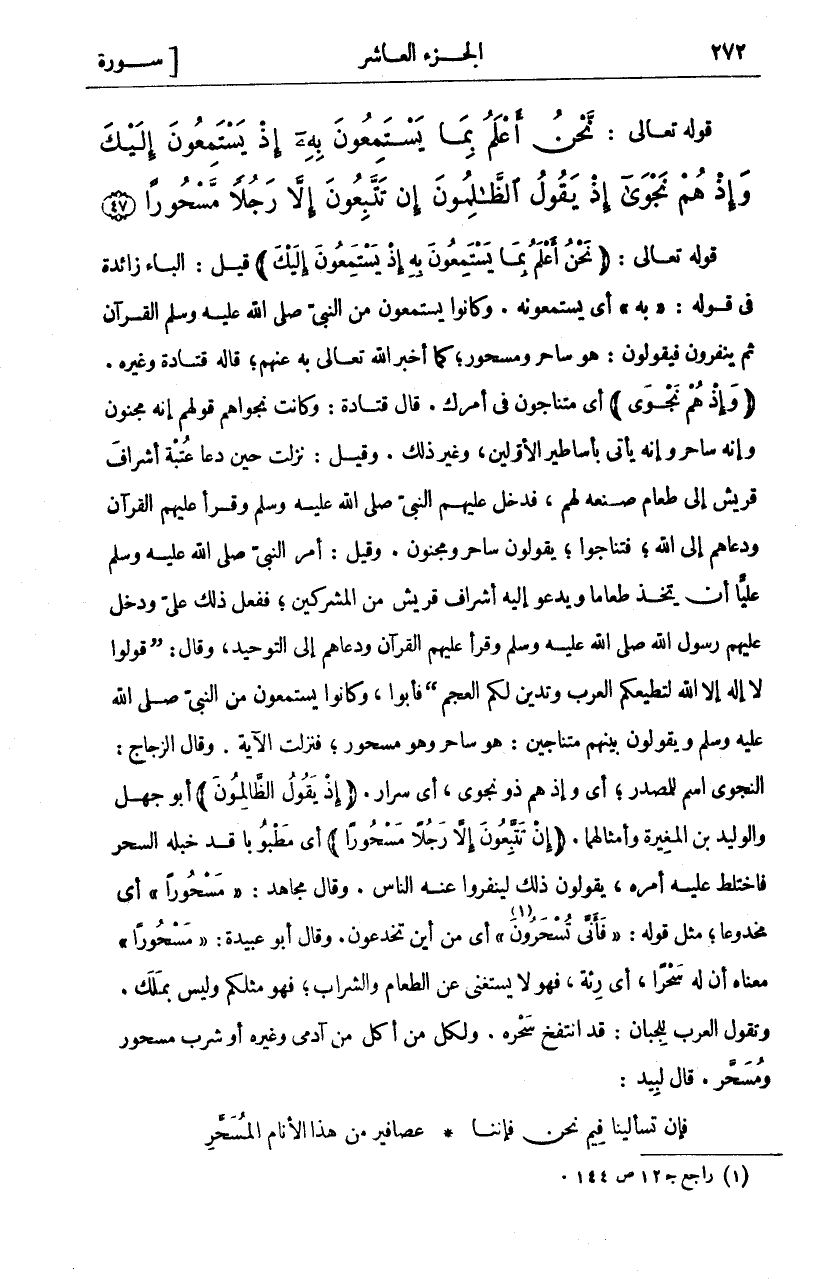 ٢٧٢ الجـزء العـاشر [ سـورة
قوله تعـالى : نَّحْنُ أَعْلَمُ بِمَا يَسْتَمِعُونَ بِهِۦٓ إِذْ يَسْتَمِعُونَ إِلَيْكَ
وَإِذْ هُمْ نَجْوَىٰٓ إِذْ يَقُولُ ٱلظَّـٰلِمُونَ إِن تَتَّبِعُونَ إِلَّا رَجُلًا مَّسْحُورًا ﴿٤٧﴾
قوله تعـالى : ﴿نَحْنُ أَعْلَمُ بِمَا يَسْتَمِعُونَ بِهِ إِذْ يَسْتَمِعُونَ إِلَيْكَ﴾ قيـل : البـاء زائدة
فى قـوله : «به» أى يستمعونه . وكانوا يستمعون من النبىّ صلى الله عليـه وسلم القـرآن
ثم ينفرون فيقولون : هو ساحر ومسحور؛ كما أخبر الله تعـالى به عنهم؛ قاله قتـادة وغيره .
﴿وَإِذْ هُمْ نَجْوَى﴾ أى متناجون فى أمرك . قال قتـادة : وكانت نجواهم قولهم إنه مجنون
وإنه ساحر وإنه يأتى بأساطير الأوّلين، وغير ذلك . وقيـل : نزلت حين دعا عُتْبة أشرافَ
قريش إلى طعام صـنعه لهم ، فدخل عليهـم النبىّ صلى الله عليـه وسلم وقـرأ عليهم القرآن
ودعاهم إلى الله ؛ فتناجوا ؛ يقولون ساحر ومجنون . وقيل : أمر النبىّ صلى الله عليـه وسلم
عليًّا أن يتخـذ طعاما ويدعو إليه أشراف قريش من المشركين ؛ ففعل ذلك علىّ ودخل
عليهم رسول الله صلى الله عليـه وسلم وقرأ عليهم القرآن ودعاهم إلى التوحيد، وقال: ”قولوا
لا إله إلا الله لتطيعكم العرب وتدين لكم العجم“ فأبوا ، وكانوا يستمعون من النبىّ صـلى الله
عليه وسلم ويقولون بينهم متناجين : هو ساحر وهو مسحور ؛ فنزلت الآية . وقال الزجاج :
النجوى اسم للصدر ؛ أى وإذ هم ذو نجوى ، أى سرار . ﴿إِذْ يَقُولُ الظَّالِمُونَ﴾ أبو جهـل
والوليد بن المـغيرة وأمثالهما . ﴿إِنْ تَتَّبِعُونَ إِلَّا رَجُلًا مَسْحُورًا﴾ أى مَطْبُو با قـد خبله السحر
فاختلط عليـه أمره ، يقولون ذلك لينفروا عنـه الناس . وقال مجاهد : « مَسْحُورًا » أى
مخدوعا؛ مثل قوله : « فَأَنَّى تُسْحَرُونَ(١) » أى من أين تخدعون. وقال أبو عبيدة: « مَسْحُورًا »
معناه أن له سَحْرًا ، أى رِئة ، فهو لا يستغنى عن الطعام والشراب؛ فهو مثلكم وليس بملَك .
وتقول العرب للجبان : قد انتفخ سَحْره . ولكل من أكل من آدمى وغيره أو شرب مسحور
ومُسَحَّر . قال لبيد :
فإن تسألينا فيم نحن فإننـا * عصافير من هذا الأنام المُسَحَّرِ
(١) راجع جـ ١٢ ص ١٤٤ .